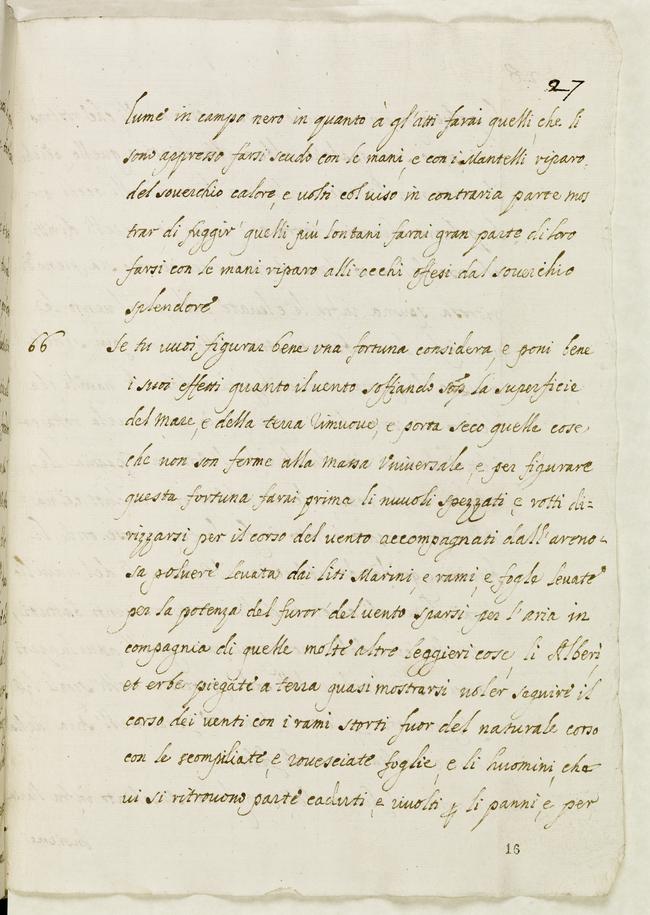 27
lume in campo nero in quanto à gl'atti farai quelli, che li
sono appresso farsi scudo con le mani, e con i Mantelli riparo
del soverchio calore, e volti col viso in contraria parte mos
trar di fuggir' quelli più lontani farai gran parte di loro
farsi con le mani riparo alli occhi offesi dal soverchio
splendore
66 Se tu vuoi figurar bene una fortuna considera, e poni bene
i suoi effetti quanto il vento soffiando sop.a la superficie
del Mare, e della terra rimuove, e porta seco quelle cose
che non son ferme alla massa Universale, e per figurare
questa fortuna farai prima li nuvoli spezzati e rotti di-
rizzarsi per il corso del vento accompagnati dall'areno-
sa polvere levata dai liti Marini, e rami, e foglie levate
per la potenza del furor del vento sparsi per l'aria in
compagnia di quelle molte altre leggieri cose, li Alberi,
et erbe piegate a terra quasi mostrarsi voler seguire il
corso dei venti con i rami storti fuor del naturale corso
con le scompiliate, e rovesciate foglie, e li huomini, che
ui si ritrovono parte caduti, e rivolti p li panni, e per
16